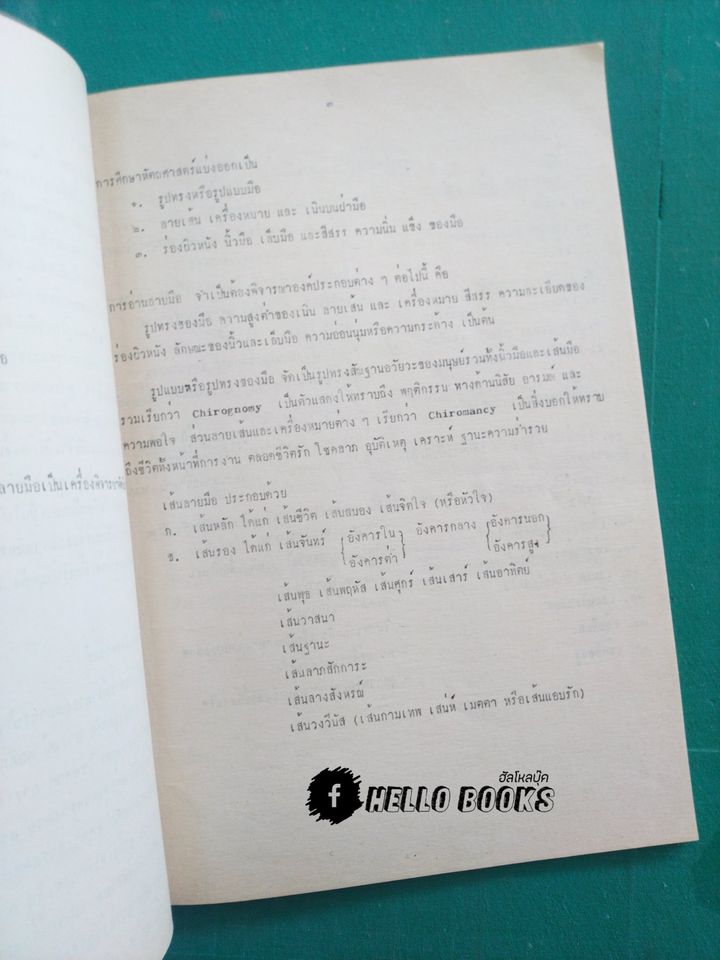 ๓
การศึกษาหัตถศาสตร์แบ่งออกเป็น
๑. รูปทรงหรือรูปแบบมือ
๒. ลายเส้น เครื่องหมาย และ เนินบนฝ่ามือ
๓. ร่องผิวหนัง นิ้วมือ เล็บมือ และสีสรร ความนิ่ม แข็ง ของมือ
การอ่านลายมือ จำเป็นต้องพิจารณาองค์ประกอบต่าง ๆ ต่อไปนี้ คือ
รูปทรงของมือ ความสูงต่ำของเนิน ลายเส้น และ เครื่องหมาย สีสรร ความละเอียดของ
ร่องผิวหนัง ลักษณะของนิ้วและเล็บมือ ความอ่อนนุ่มหรือความกระด้าง เป็นต้น
รูปแบบหรือรูปทรงของมือ จัดเป็นรูปทรงสัณฐานอวัยวะของมนุษย์รวมทั้งนิ้วมือและเส้นมือ
รวมเรียกว่า Chirognomy เป็นตัวแสดงให้ทราบถึง พฤติกรรม ทางด้านนิสัย อารมต์ และ
ความพอใจ ส่วนลายเส้นและเครื่องหมายต่าง ๆ เรียกว่า Chiromancy เป็นสิ่งบอกให้ทราบ
ถึงชีวิตทั้งหน้าที่การงาน ตลอดชีวิตรัก โชคลาภ อุบัติเหตุ เคราะห์ ฐานะความร่ำรวย
ลายมือเป็นเครื่อง
เส้นลายมือ ประกอบด้วย
ก. เส้นหลัก ได้แก่ เส้นชีวิต เส้นสมอง เส้นจิตใจ (หรือหัวใจ)
ข. เส้นรอง ได้แก่ เส้นจันทร์ {อังคารใน อังคารต่ำ} อังคารกลาง {อังคารนอก อังคารสูง}
เส้นพุธ เส้นพฤหัส เส้นศุกร์ เส้นเสาร์ เส้นอาทิตย์
เส้นวาสนา
เส้นฐานะ
เส้นลาภสักการะ
เส้นลางสังหรณ์
เส้นวงวีนัส (เส้นกามเทพ เสน่ห์ เมตตา หรือเส้นแอบรัก)
ฮัลโหลบุ๊ค
f HELLO BOOKS